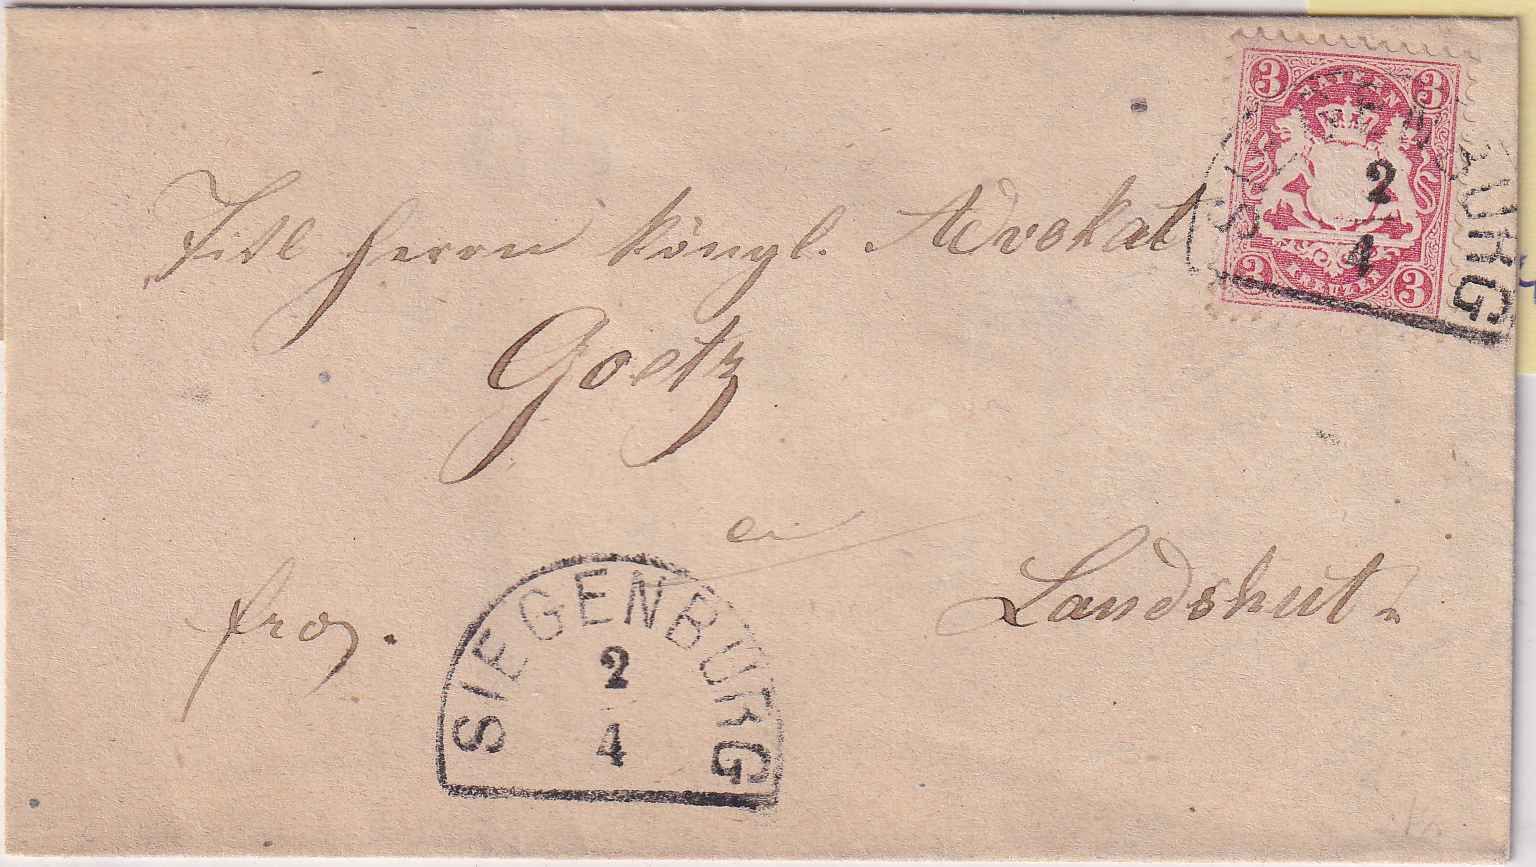 3 BAYERN 3
3 KREUZER 3
SIEGENBURG
2
4
Titl Herrn königl. Advokat
Goetz
in
Landshut
frco.
SIEGENBURG
2
4